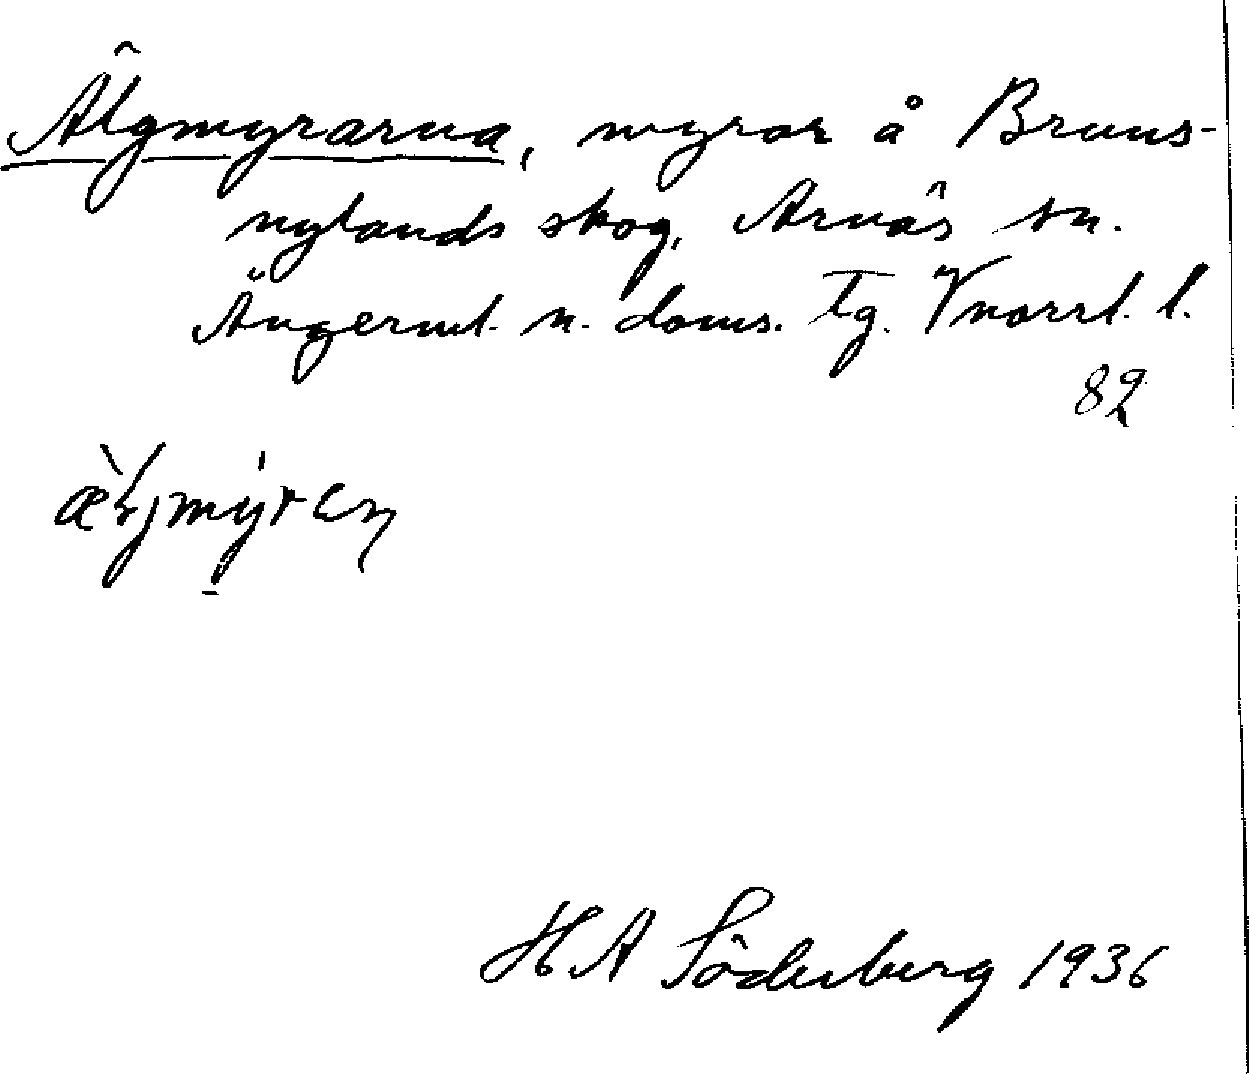 Älgmyrarna, myror å Bruns-
nylands skog, Arnäs sn.
Ångerml. n. doms. Tg. Vnorrl. l.
82
H A Söderberg 1936